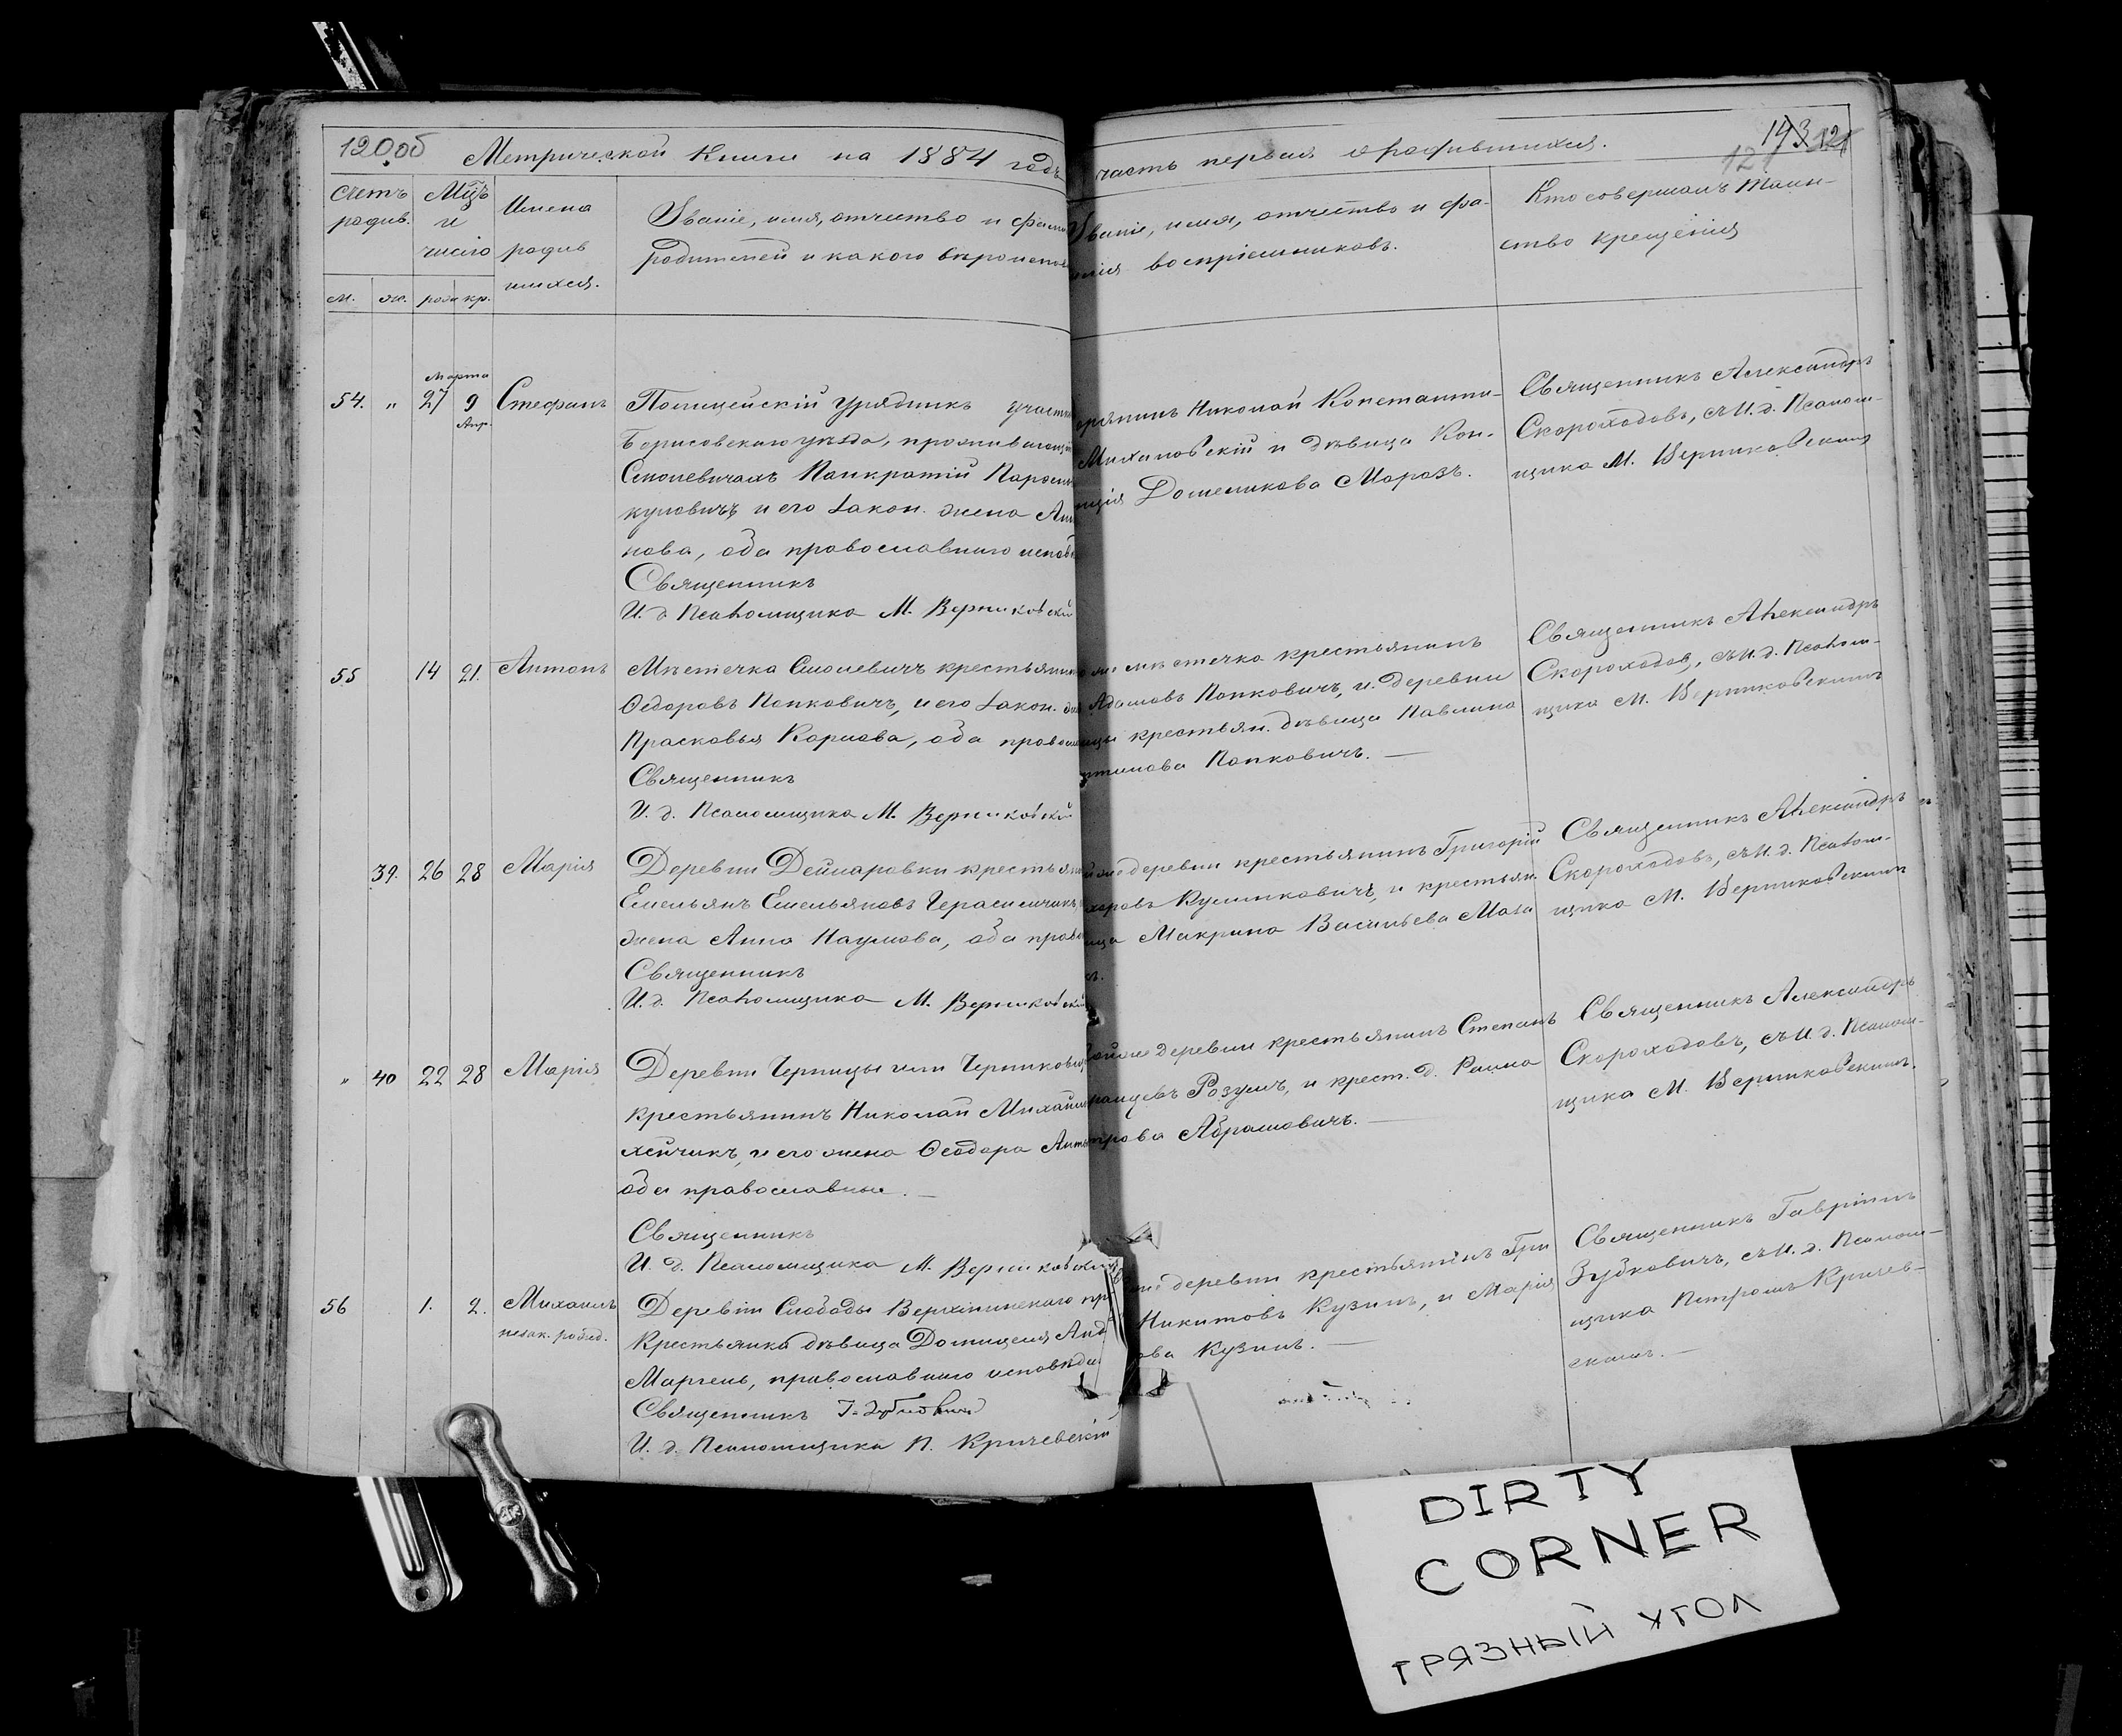 120 об
Метрической Книги на 1884 годъ
часть первая о родившихся.
143
121
Счетъ родив.
Мцъ и число
Имена родив шихся.
Званіе, имя, отчество и фами
родителей и какого вѣроиспов
Званіе, имя, отчество и фа-
воспріемниковъ.
Кто совершалъ Таин-
ство крещенія
м. ж. рож кр.
Марта
54. " 27 9 Стефанъ
Апр.
Полицейскій Урядникъ участка
Борисовскаго уѣзда, проживающій
Смолевичахъ Панкратій
куловичъ и его закон. жена
нова, оба православнаго испов
Священникъ
И. д. Псаломщика М. Верниковскій
Николай Константи-
Михаловскій и дѣвица Кон-
Доменикова Морозъ.
Священникъ Александръ
Скороходовъ, съ И. д. Псалом-
щика М. Верниковскимъ
55 14 21. Антонъ
Мѣстечка Смолевичъ крестьянинъ
Ѳедоровъ Папковичъ, и его закон.
Прасковья Карпова, оба правосл
Священникъ
И. д. Псаломщика М. Верниковскій
мѣстечка крестьянинъ
Адамовъ Папковичъ, и деревни
крестьян. дѣвица Павлина
Папковичъ. —
Священникъ Александръ
Скороходовъ, съ И. д. Псалом-
щика М. Верниковскимъ
39. 26 28 Марія
Деревни Дейнаровки крестьян
Емельянъ Емельяновъ Герасимчикъ,
жена Анна Наумова, оба право
Священникъ
И. д. Псаломщика М. Верниковскій
деревни крестьянинъ Григорій
Кулинковичъ, и крестьян
Макрина Васильева Маза
къ.
Священникъ Александръ
Скороходовъ, съ И. д. Псалом-
щика М. Верниковскимъ
" 40 22 28 Марія
Деревни Черницы или Черниковщ
крестьянинъ Николай Михайл
хейчикъ, и его жена Ѳеодора Анто
оба православные. —
Священникъ
И. д. Псаломщика М. Верниковскій
деревни крестьянинъ Степанъ
Розумъ, и крест. д. Раина
Абрамовичъ. —
Священникъ Александръ
Скороходовъ, съ И. д. Псалом-
щика М. Верниковскимъ.
56 1. 2. Михаилъ
незак. рожд.
Деревни Слободы Верхминскаго пр
Крестьянка дѣвица Домицеля Анд
Маргель, православнаго исповѣда
Священникъ Г. Зубковичъ
И. д. Псаломщика П. Кричевскій
деревни крестьянинъ Гри
Никитовъ Кузинъ, и Марія
Кузинъ. —
Священникъ Гавріилъ
Зубковичъ, съ И. д. Псалом-
щика Петромъ Кричев-
скимъ. —
DIRTY
CORNER
ГРЯЗНЫЙ УГОЛ